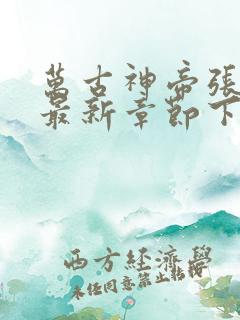 萬古神帝張
最新章節下
西方經濟學
未經同意禁止轉載